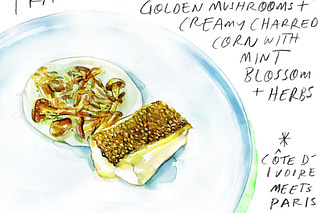 GOLDEN MUSHROOMS +
CREAMY CHARRED
CORN WITH
MINT
BLOSSOM
+ HERBS
*
CÔTE D'
IVOIRE
MEETS
PARIS